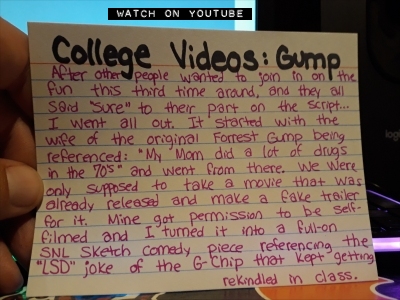 WATCH ON YOUTUBE
College Videos: Gump
After other people wanted to join in on the
fun this third time around, and they all
said "sure" to their part on the script...
I went all out. It started with the
wife of the original Forrest Gump being
referenced: "My Mom did a lot of drugs
in the 70's" and went from there. We were
only supposed to take a movie that was
already released and make a fake trailer
for it. Mine got permission to be self-
filmed and I turned it into a full-on
SNL sketch comedy piece referencing the
"LSD" joke of the G-Chip that kept getting
rekindled in class.
logi